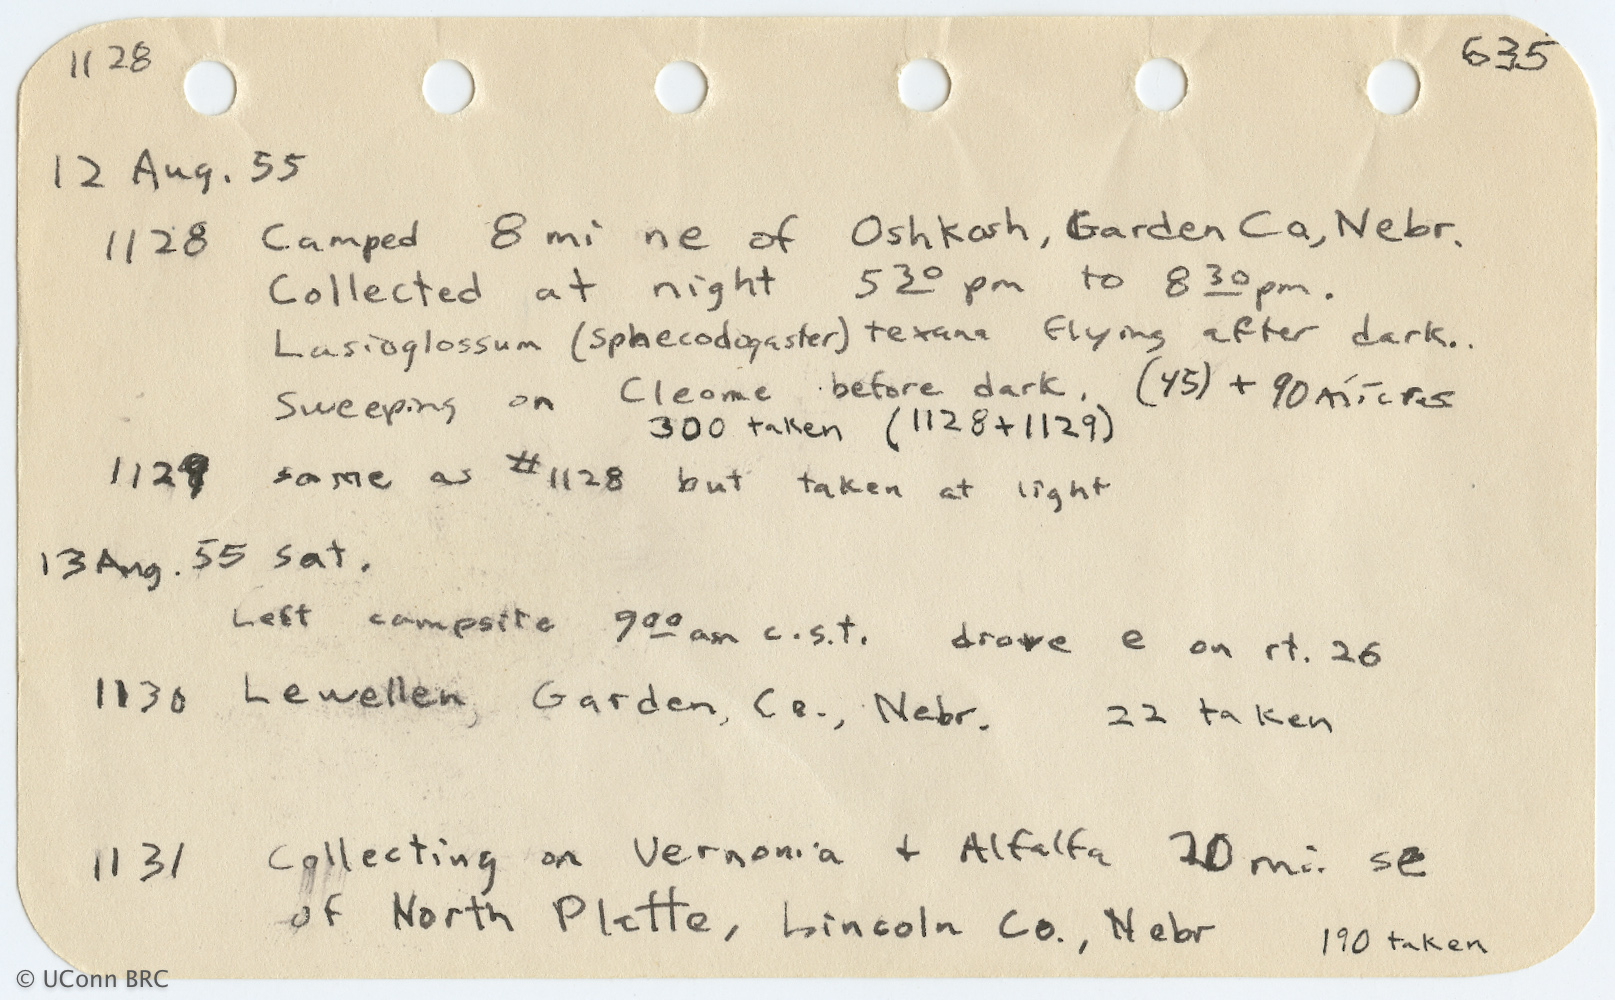 1128 635
12 Aug. 55
1128 Camped 8 mi ne of Oshkosh, Garden Co, Nebr.
Collected at night 5 30 pm to 8 30 pm.
Lasioglossum (Sphecodogaster) texana flying after dark..
Sweeping on Cleome before dark. (45) + 90 micros
300 taken (1128+1129)
1129 same as #1128 but taken at light
13 Aug. 55 Sat.
Left campsite 9 00 am c.s.t. drove e on rt. 26
1130 Lewellen, Garden, Co., Nebr. 22 taken
1131 Collecting on Vernonia + Alfalfa 20 mi. se
of North Platte, Lincoln Co., Nebr 190 taken
© UConn BRC